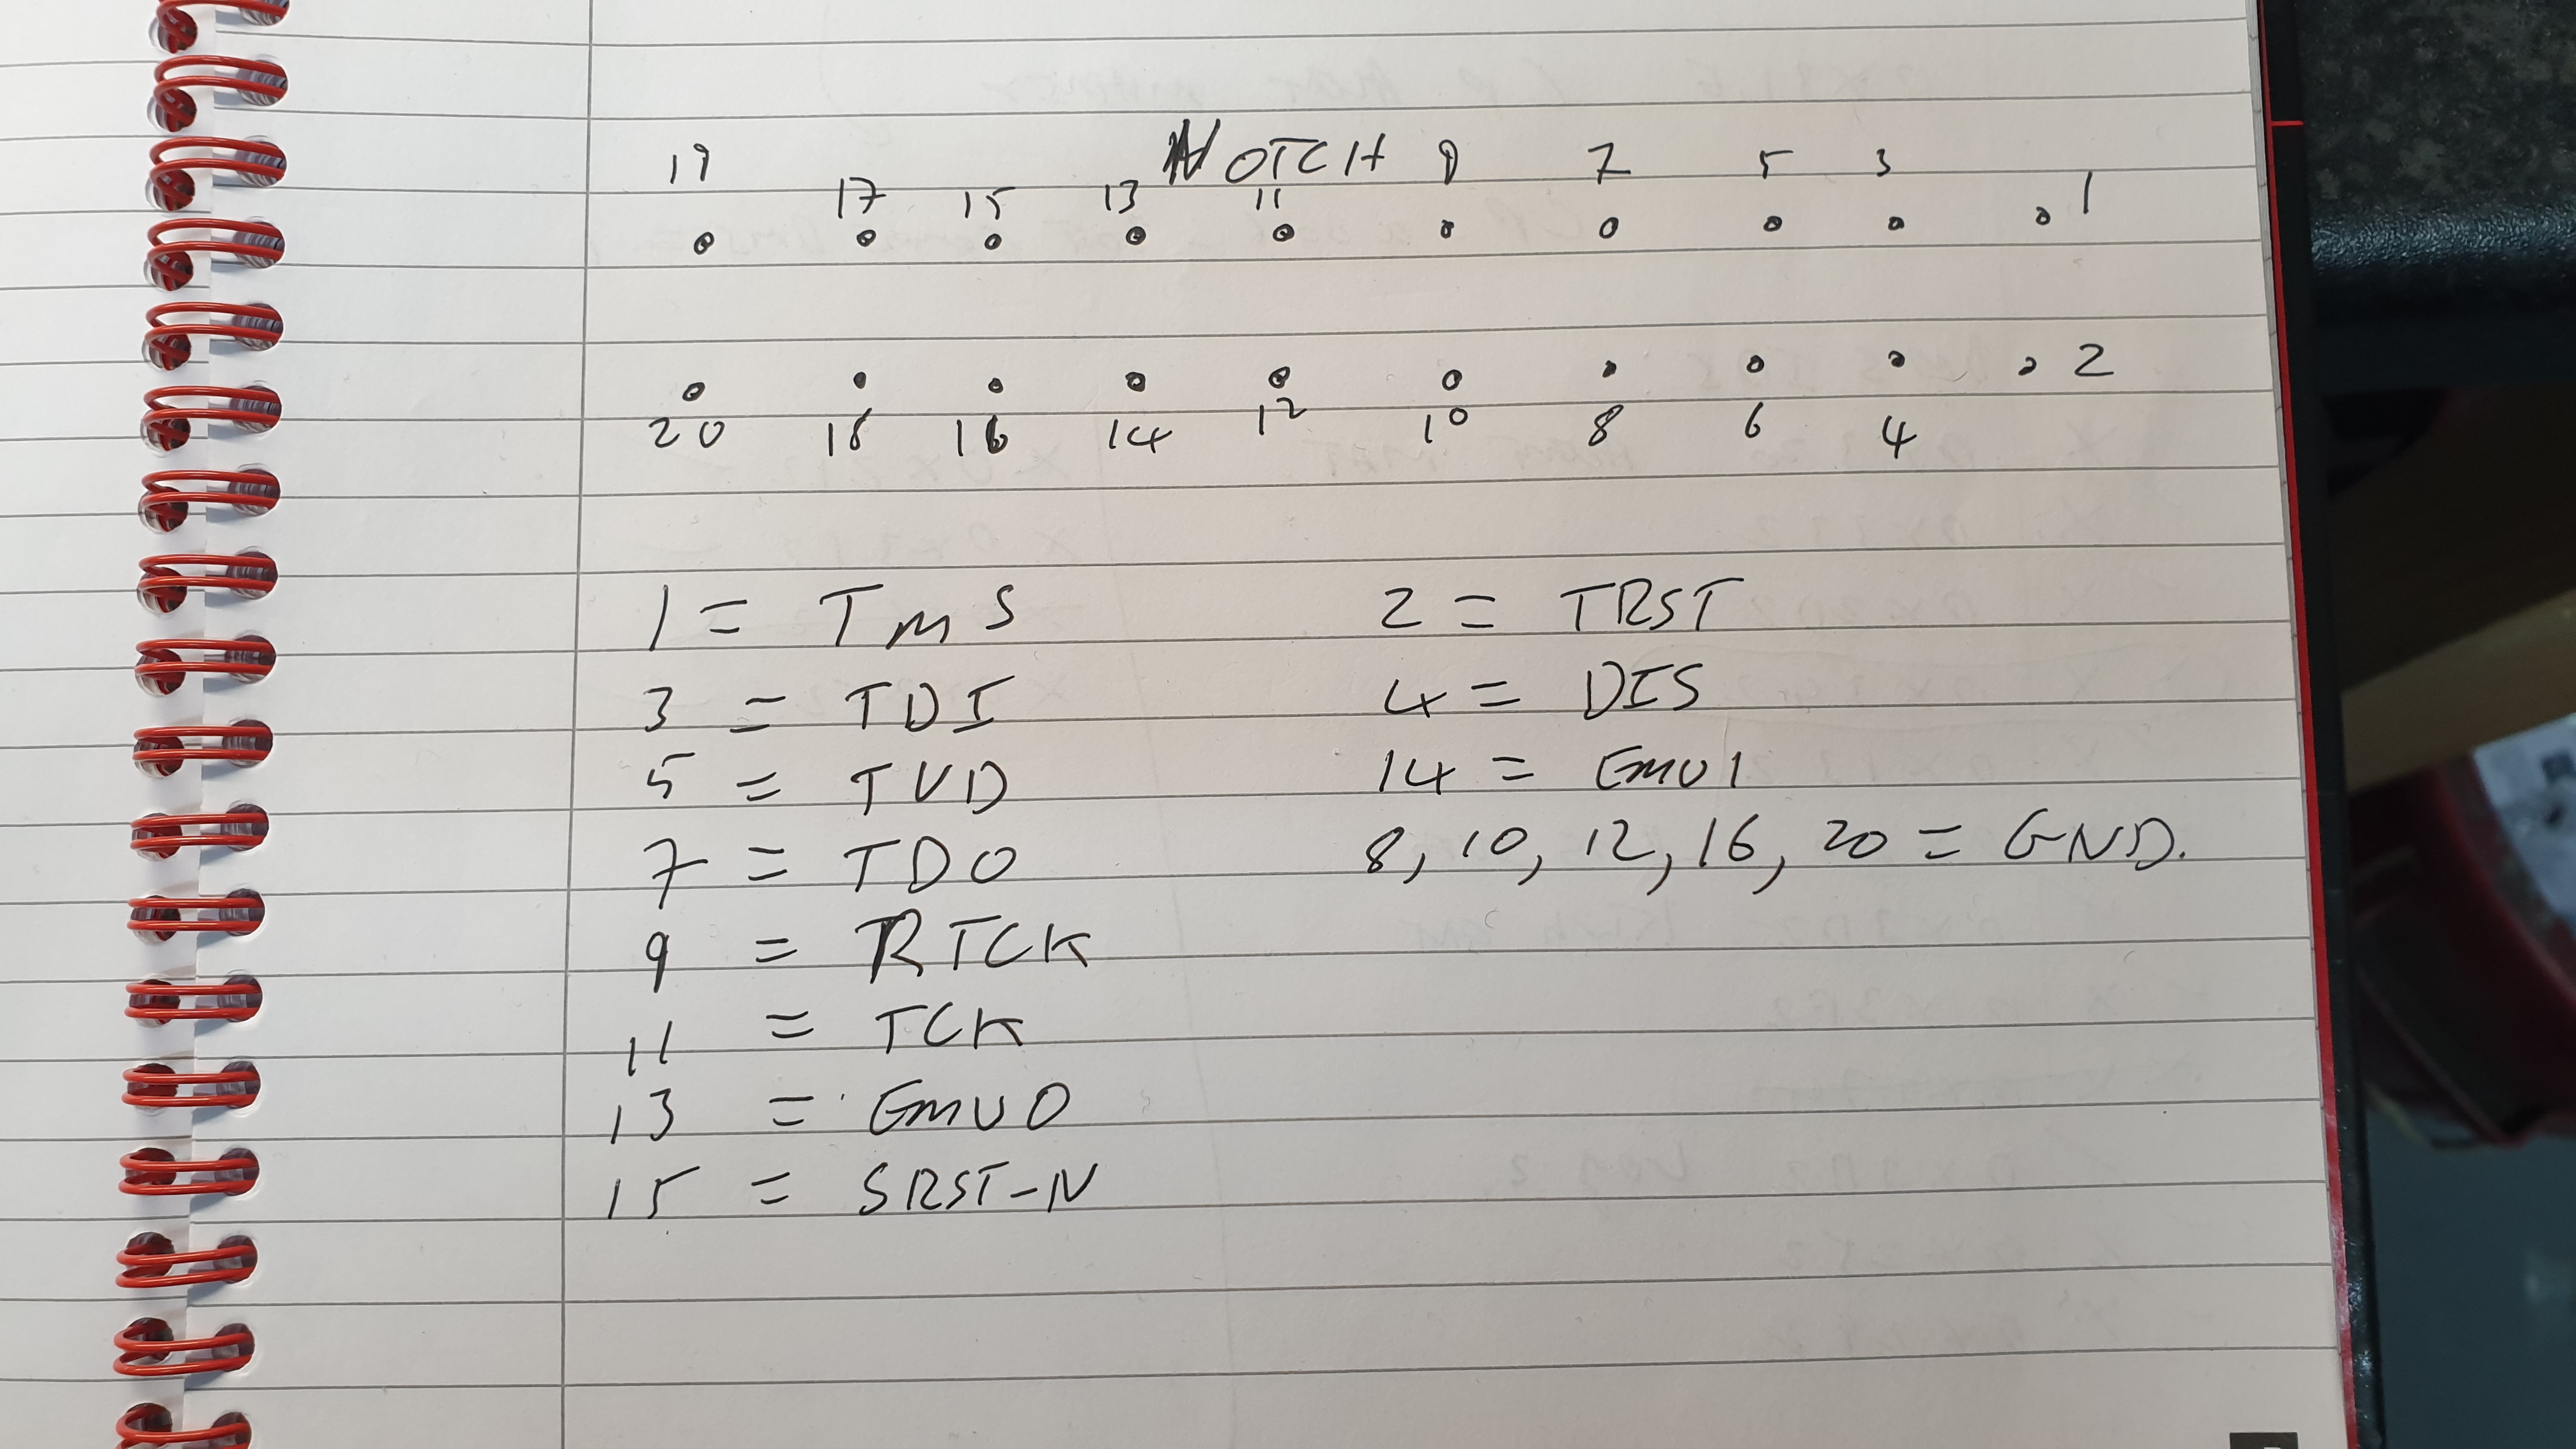 19 17 15 13 NOTCH 11 9 7 5 3 1
2
20 18 16 14 12 10 8 6 4
1 = TMS
3 = TDI
5 = TVD
7 = TDO
9 = RTCK
11 = TCK
13 = EMU0
15 = SRST-N
2 = TRST
4 = DIS
14 = EMU1
8, 10, 12, 16, 20 = GND.